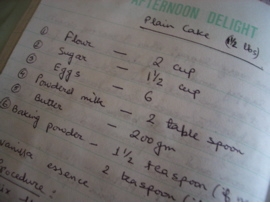 AFTERNOON DELIGHT
Plain Cake (1½ lbs)
① Flour — 2 cup
② Sugar — 1½ cup
③ Eggs — 6
④ Powdered milk — 2 table spoon
⑤ Butter — 200 gm
⑥ Baking powder — 1½ teaspoon (if
vanilla essence 2 teaspoon
Procedure: